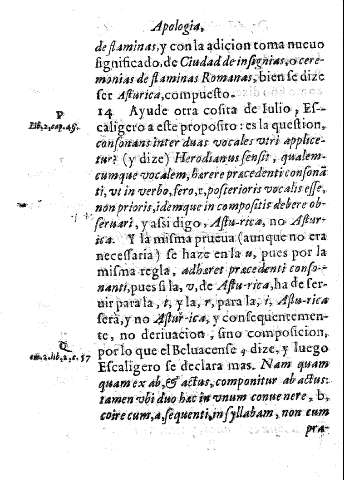 Apologia,
de flaminas, y con la adicion toma nueuo
significado, de Ciudad de insignias, o cere-
monias de flaminas Romanas, bien se dize
ser Asturica, compuesto.
P
Lib, 2, cap, 45.
14 Ayude otra cosita de Iulio, Es-
caligero a este proposito: es la question,
consonans inter duas vocales vtri applice-
tur? (y dize) Herodianus sensit, qualem-
cumque vocalem, hærere præcedenti consonã
ti, vt in verbo, fero, r, posterioris vocalis esse,
non prioris, idemque in compositis debere ob-
seruari, y assi digo, Astu-rica, no Astur-
ica. Y la misma prueua (aunque no era
necessaria) se haze en la u, pues por la
misma regla, adhæret præcedenti conso-
nanti, pues si la, v, de Astu-rica, ha de ser-
uir para la, t, y la, r, para la, i, Astu-rica
serà, y no Astur-ica, y consequentemen-
te, no deriuacion, sino composicion,
Q
lib, 2, c. 57
por lo que el Beluacense q dize, y luego
Escaligero se declara mas. Nam quam
quam ex ab, & actus, componitur ab actus:
tamen vbi duo hac in vnum conuenere, b,
coire cum, a, sequenti, in syllabam, non cum
præ-